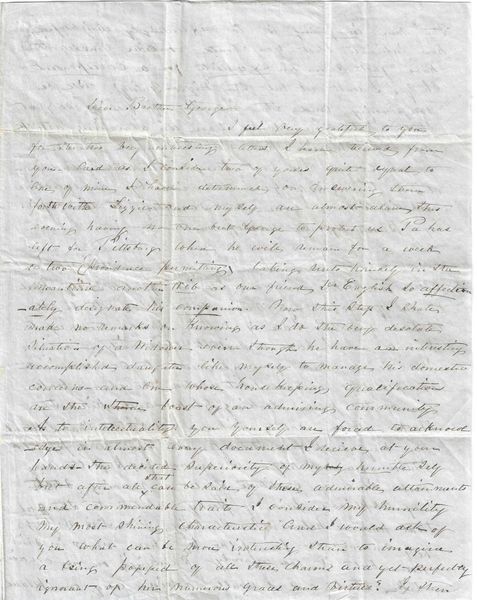 Dear Brother George
I feel very gratified to you
for the two very interesting letters I have received from
you and as I consider two of yours quite equal to
one of mine I have determined on answering them
forthwith Lizzie and myself are almost alone this
evening having no one but George to protect us Pa has
left for Pittsburg where he will remain for a week
or two (Providence permitting) taking unto himself in the
meantime another rib as our friend Dr English so affection
ately designates his companion. Now this step I shall
make no remarks on knowing as I do the very desolate
situation of a Widower even though he have an interesting
accomplished daughter like myself to manage his domestic
concerns and one whose housekeeping qualification
are the boast of an admiring community
As to intellectuality you yourself are forced to acknowl
edge in almost every document I receive at your
hands the decided superiority of my humble self
but after all that can be said of these admirable attainments
and commendable traits I consider my humility
my most shining characteristic and I would ask of
you what can be more interesting than to imagine
a being possessed of all these charms and yet perfectly
ignorant of her numerous graces and virtues?